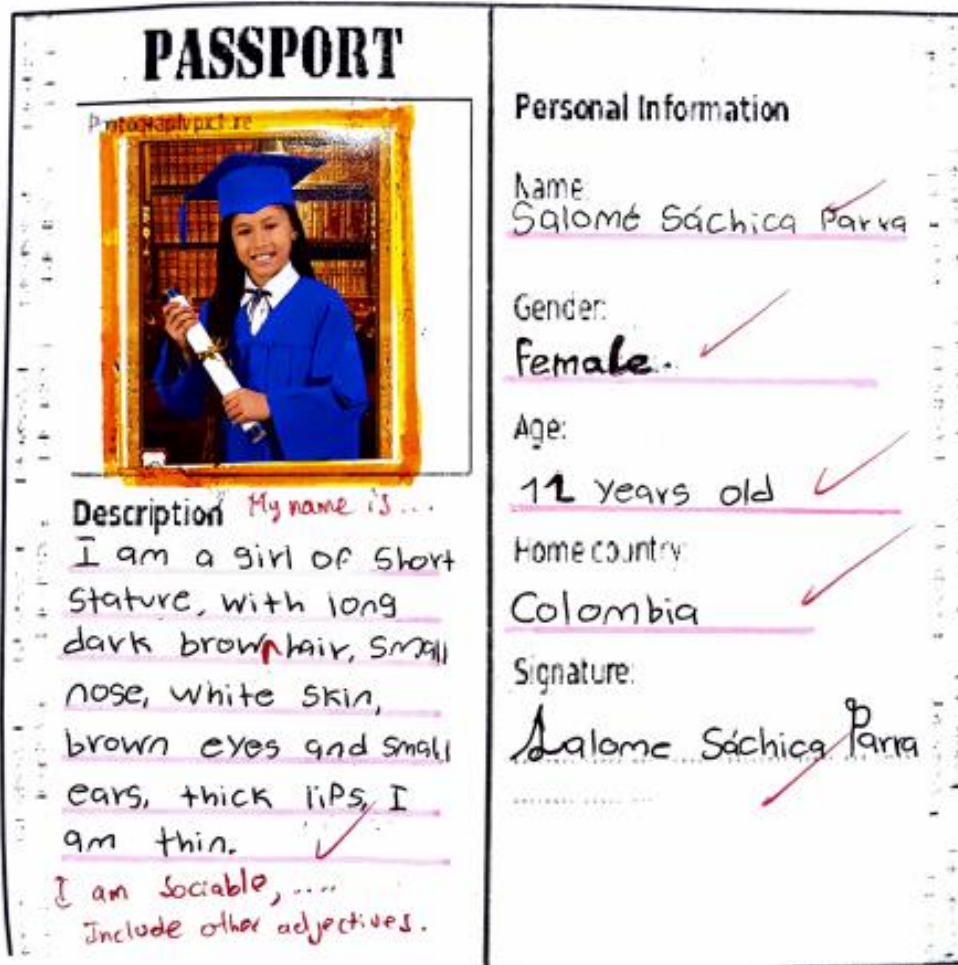 PASSPORT
Photography picture
Description My name is ...
I am a girl of short
stature, with long
dark brown hair, small
nose, white skin,
brown eyes and small
ears, thick lips, I
am thin.
I am Sociable, ....
Include other adjectives.
Personal Information
Name:
Salomé Sáchica Parra
Gender:
Female.
Age:
11 years old
Home country:
Colombia
Signature:
Salome Sáchica Parra